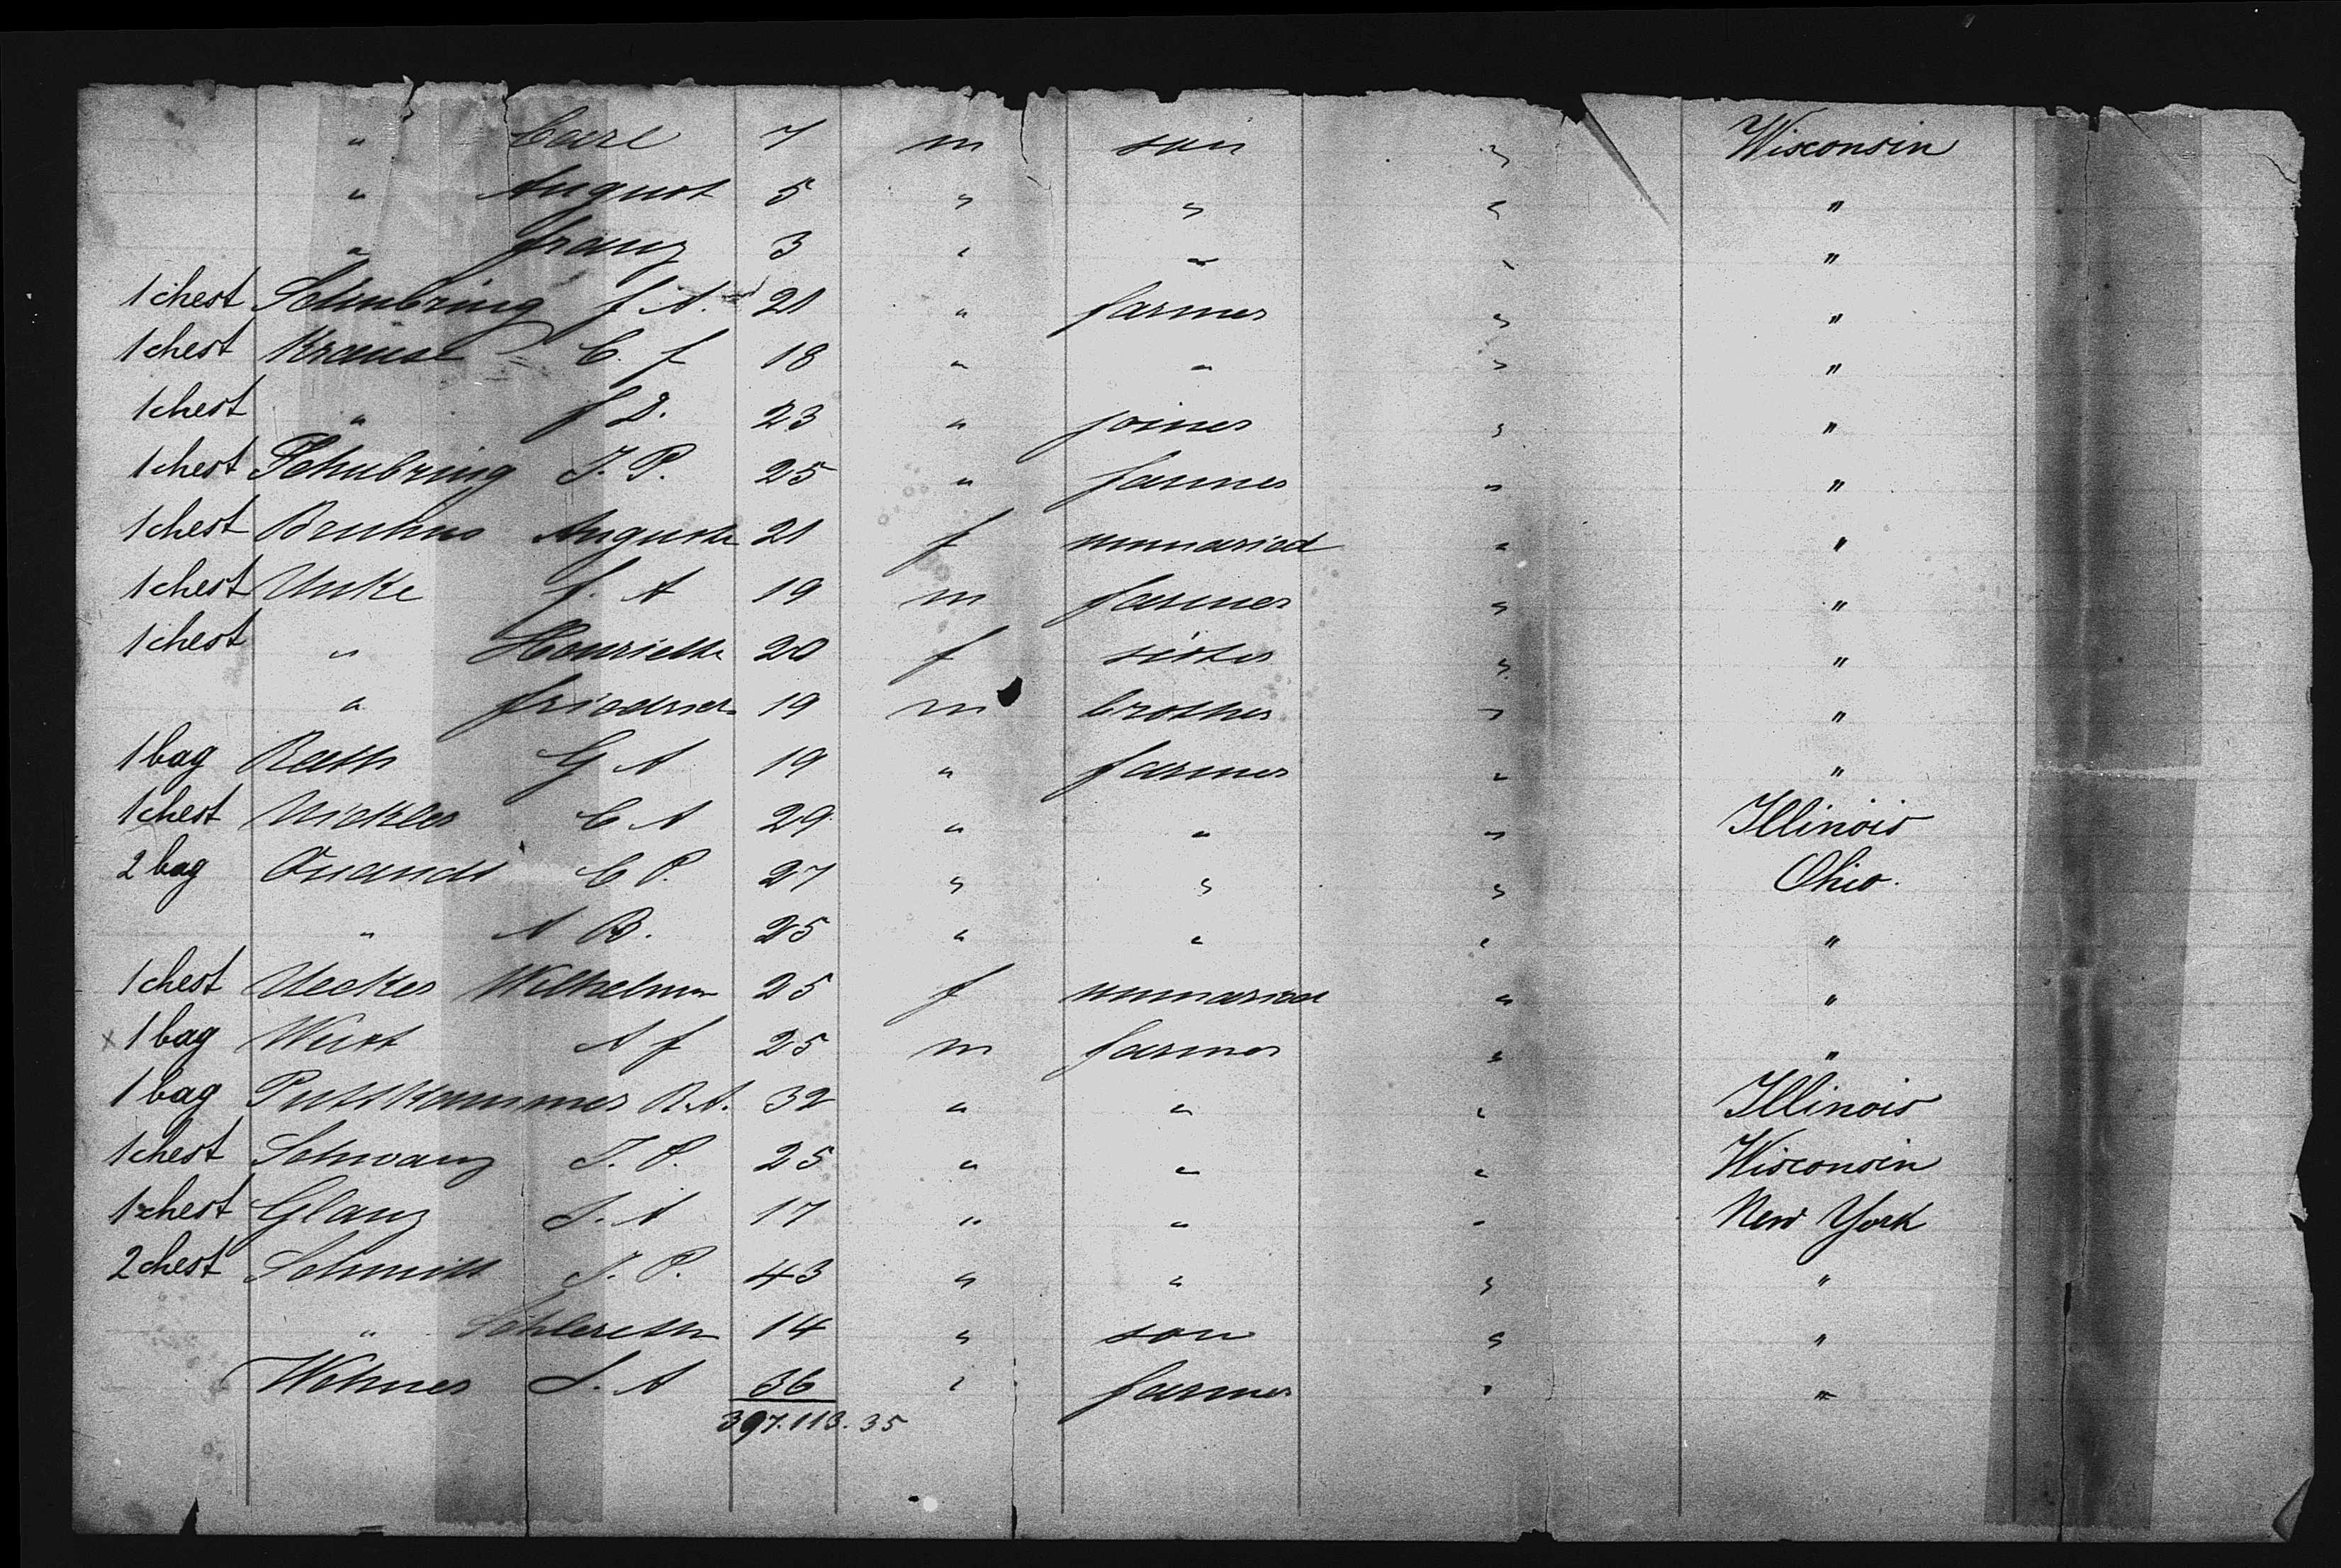 " Carl 7 m son " Wisconsin
" August 5 " " " "
" Franz 3 " " " "
1 chest Schubring F. A. 21 " farmer " "
1 chest Krause C. F 18 " " " "
1 chest " F D. 23 " joiner " "
1 chest Schubring J. P. 25 " farmer " "
1 chest Bruhns Auguste 21 f unmaried " "
1 chest Unke F. A 19 m farmer " "
1 chest " Henriette 20 f sister " "
" Friedrich 19 m brother " "
1 bag Rath G A 19 " farmer " "
1 chest C A 29 " " " Illinois
2 bag Quandt C P. 27 " " " Ohio.
" A B. 25 " " " "
1 chest Uecker Wilhelmn 25 f unmaried " "
x 1 bag A F 25 m farmer " "
1 bag Puttkammer R. A. 32 " " " Illinois
1 chest Schwanz J. P. 25 " " " Wisconsin
1 chest Glanz J. A 17 " " " New York
2 chest Schmitt J. P. 43 " " " "
" 14 " son " "
Wehner J. A 36 " farmer " "
397.113.35